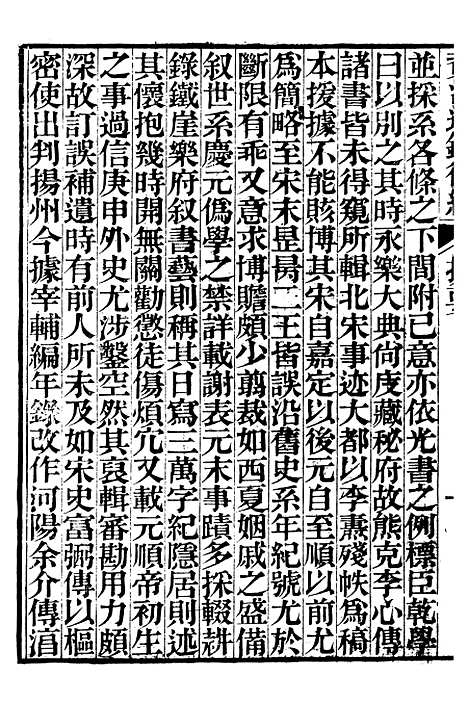 並採系各條之下間附己意亦依光書之例標臣乾學
曰以別之其時永樂大典尙庋藏秘府故熊克李心傳
諸書皆未得窺所輯北宋事迹大都以李燾殘帙爲稿
本援據不能賅博其宋自嘉定以後元自至順以前尤
爲簡略至宋末昰昺二王皆誤沿舊史系年紀號尤於
斷限有乖又意求博贍頗少剪裁如西夏姻戚之盛備
叙世系慶元僞學之禁詳載謝表元末事蹟多採輟耕
錄鐵崖樂府叙書藝則稱其日寫三萬字紀隱居則述
其懷抱幾時開無關勸懲徒傷煩冗又載元順帝初生
之事過信庚申外史尤涉鑿空然其裒輯審勘用力頗
深故訂誤補遺時有前人所未及如宋史富弼傳以樞
密使出判揚州今據宰輔編年錄改作河陽余介傳淯